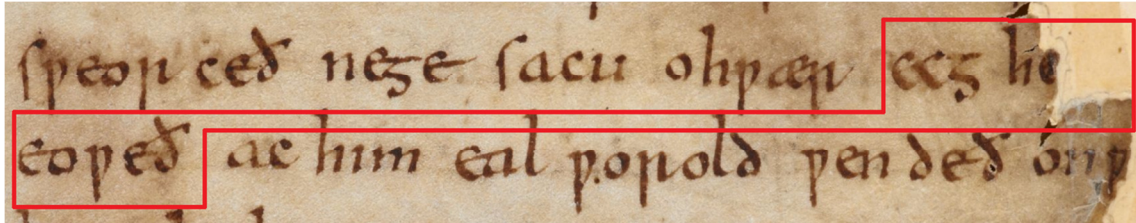 sƿeor ceð nege sacu ohƿær ecg he
eoƿeð ac him eal ƿorold ƿen deð onƿ